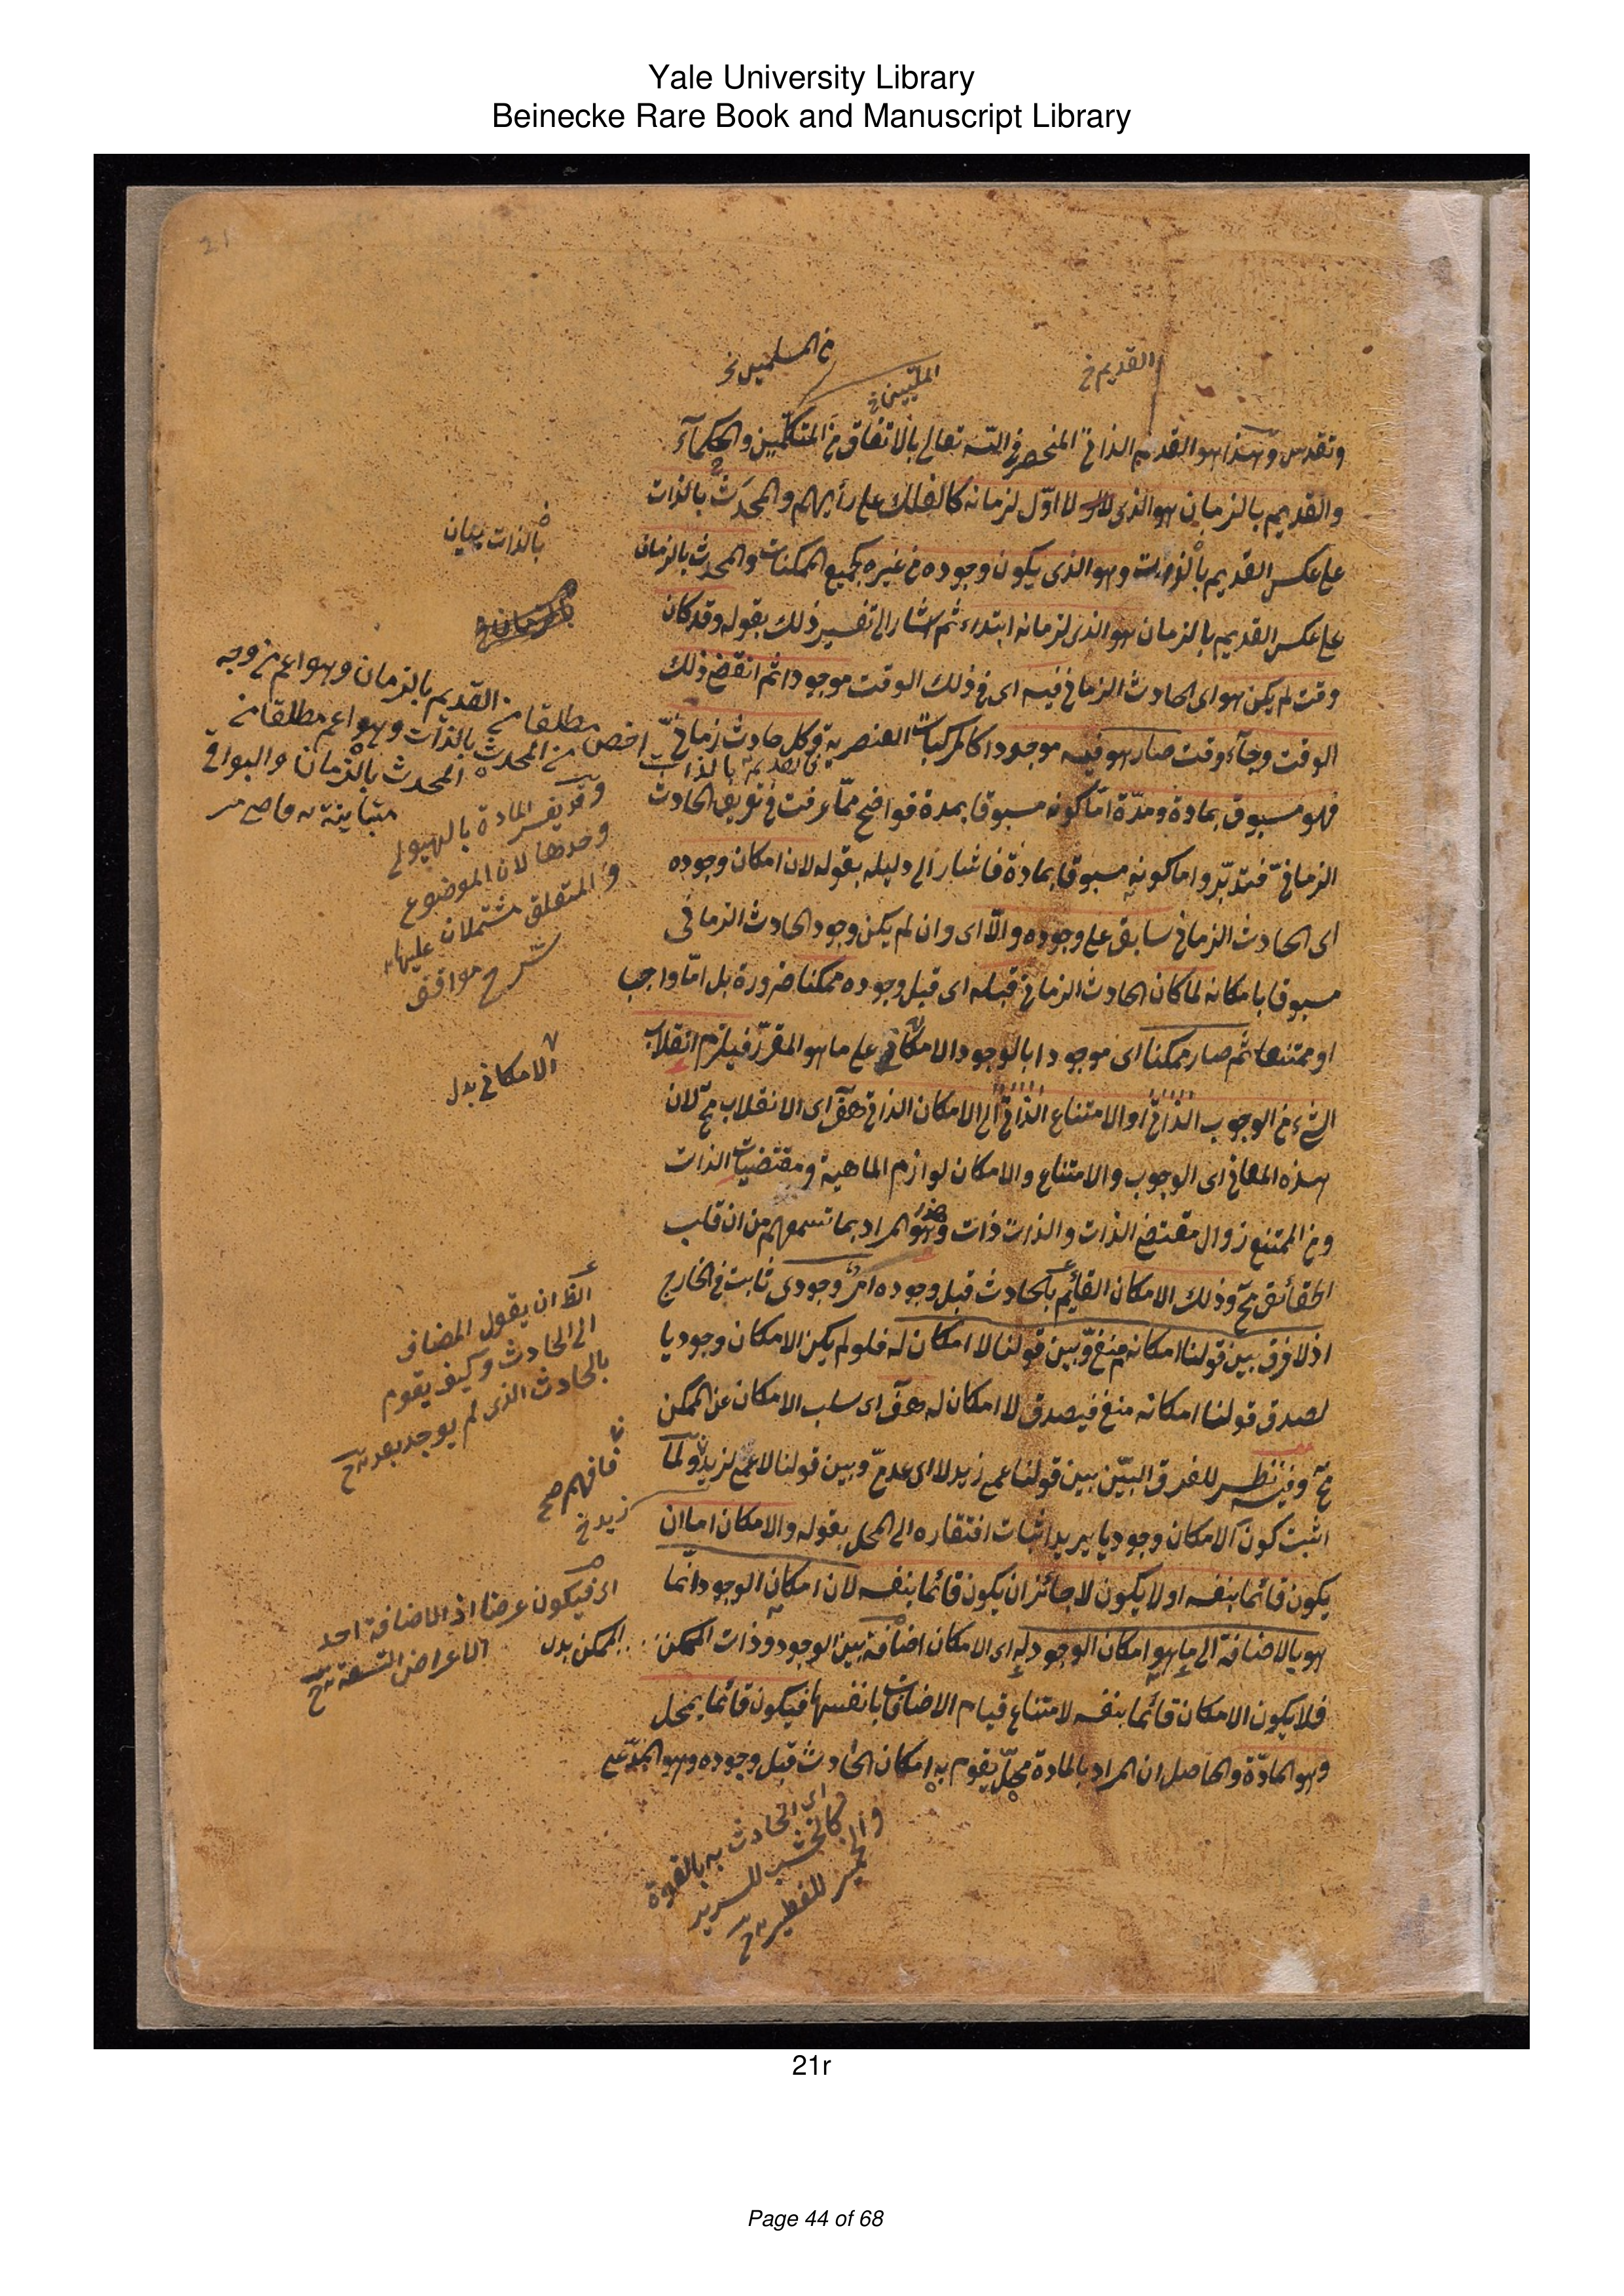 Yale University Library
Beinecke Rare Book and Manuscript Library
21
من المسلمين نخ
المليين نخ
القديم نخ
وتقدس وهذا هو القديم الذاتي المنحصر في الله تعالى بالاتفاق من المتكلمين والحكمآء
والقديم بالزمان هو الذي لا اوّل لزمانه كالفلك على رأيهم والمحدَث بالذات
على عكس القديم بالذات وهو الذي يكون وجوده من غيره كجميع الممكنات والمحدث بالزمان
على عكس القديم بالزمان هو الذي لزمانه ابتداء ثم اشار الى تفسير ذلك بقوله وقد كان
وقت لم يكن هو اى الحادث الزماني فيه اى في ذلك الوقت موجودا ثم انقضى ذلك
الوقت وجآء وقت صار هو فيه موجودا كالمركبات العنصرية وكل حادث زماني
فهو مسبوق بمادة ومدّة امّا كونه مسبوقا بمدة فواضح ممّا عرفت في تعريف الحادث
الزماني فتدبّر واما كونه مسبوقا بمادة فاشار الى دليله بقوله لان امكان وجوده
اى الحادث الزماني سابق على وجوده والّا اى وان لم يكن وجود الحادث الزماني
مسبوقا بامكانه لما كان الحادث الزماني قبله اى قبل وجوده ممكنا ضرورة بل امّا واجب
او ممتنعا ثم صار ممكنا اى موجودا بالوجود الامكاني على ما هو المقرّر فيلزم انقلاب
الشئ من الوجوب الذاتي او الامتناع الذاتي الى الامكان الذاتي هف اى الانقلاب مح لان
هذه المعاني اى الوجوب والامتناع والامكان لوازم الماهية ومقتضيات الذات
ومن الممتنع زوال مقتضى الذات والذات ذات وهو المراد بما تسمعهم من ان قلب
الحقائق مح وذلك الامكان القائم بالحادث قبل وجوده امر وجودي ثابت في الخارج
اذ لا فرق بين قولنا امكانه منفي وبين قولنا لا امكان له فلو لم يكن الامكان وجوديا
لصدق قولنا امكانه منفي فيصدق لا امكان له هف اى سلب الامكان عن الممكن
مح وفيه نظر للفرق البيّن بين قولنا عمى زيد لا اى عدمي وبين قولنا لا عمى لزيد ولما
اثبت كون الامكان وجوديا يريد اثبات افتقاره الى المحل بقوله والامكان اما ان
يكون قائما بنفسه او لا يكون لا جائز ان يكون قائما بنفسه لان امكان الوجود انما
هو بالاضافة الى ما هو امكان الوجود له اى الامكان اضافة بين الوجود وذات الممكن
فلا يكون الامكان قائما بنفسه لامتناع قيام الاضافات بانفسها فيكون قائما بمحل
وهو المادّة والحاصل ان المراد بالمادة محلّ يقوم به امكان الحادث قبل وجوده وهو المدّعى
بالذات بيان
القديم بالذات
اخص مطلقا من القديم بالزمان وهو اعم من وجه
من المحدث بالذات وهو اعم مطلقا من
المحدث بالزمان والبواقي
متباينة
وقد يفسر المادة بالهيولى
وحدها لان الموضوع
والمتعلق مشتملان عليها
شرح مواقف
الامكاني بدل
الظ ان يقول المضاف
الى الحادث وكيف يقوم
بالحادث الذي لم يوجد بعد
فافهم صح
زيد نخ
اى فيكون عرضا اذ الاضافة احد
الاعراض التسعة
الممكن بدل
اى الحادث به بالقوة
كالخشب للسرير
21r
Page 44 of 68